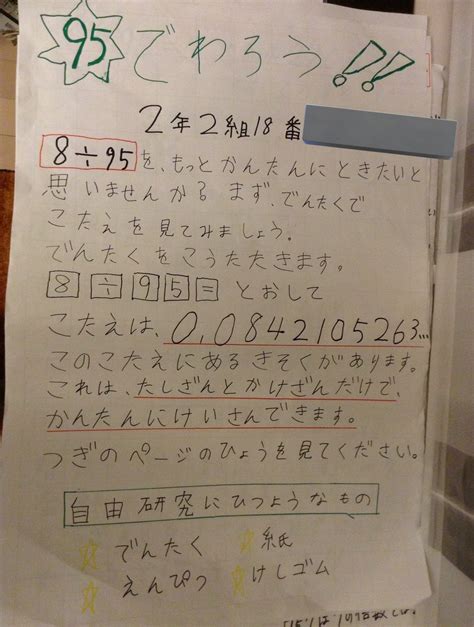 95でわろう!!
2年2組18番
8÷95を、もっとかんたんにときたいと
思いませんか？まず、でんたくで
こたえを見てみましょう。
でんたくをこうたたきます。
8÷95=とおして
こたえは、0,0842105263...
このこたえにあるきそくがあります。
これは、たしざんとかけざんだけで、
かんたんにけいさんできます。
つぎのページのひょうを見てください。
自由研究にひつようなもの
☆でんたく ☆紙
☆えんぴつ ☆けしゴム